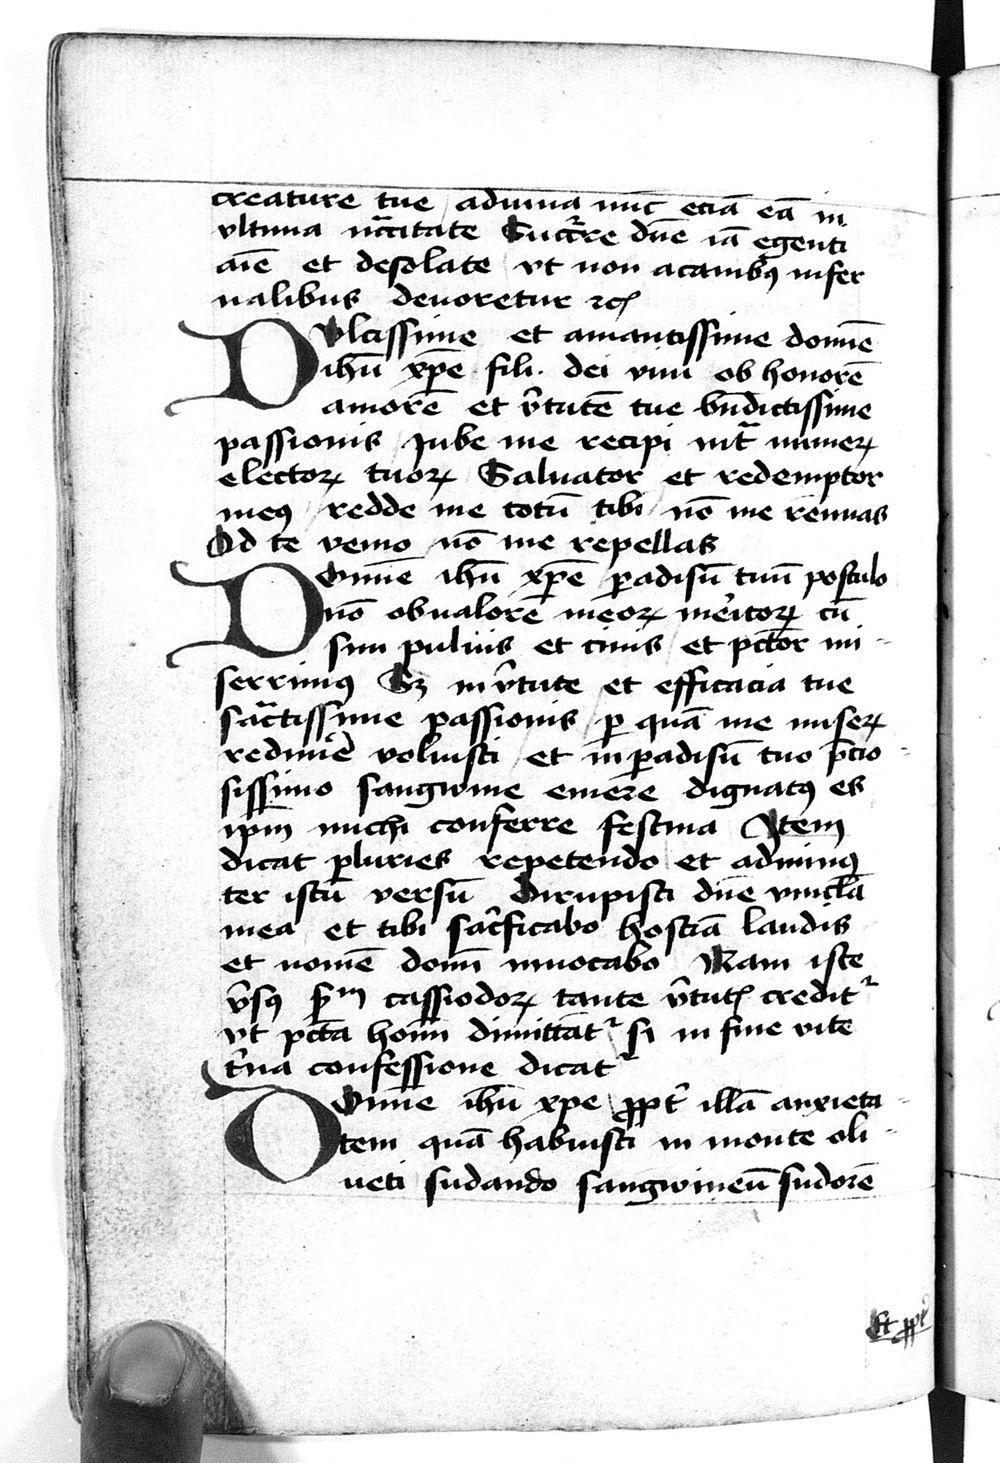 creature tue adiuua nūc eciā eā in
vltima nc̄citate Succ̄re dn̄e iā egenti
aīe et desolate vt non a canibꝰ infer
nalibus deuoretur ⁊cꝭ
Dulcissime et amantissime domīe
ihū xp̄e fili dei viui ob honorē
amorē et v̄tutē tue bn̄dictissime
passionis Jube me recipi intᷓ numeꝝ
electoꝝ tuoꝝ Saluator et redemptor
meꝰ redde me totū tibi nō me rēnuas
Ad te venio nō me repellas
Domīe ihū xp̄e ꝑadisū tuū postulo
nō ob valorē meoꝝ meritoꝝ cū
sim puluis et cinis et pc̄tor mi
serrimꝰ Sꝫ in v̄tute et efficacia tue
sāctissime passionis ꝑ quā me miseꝝ
redimē voluisti et in ꝑadisū tuo p̄cio
sissimo sangwine emēre dignatꝰ es
ip̄m michi conferre festina Item
dicat pluries repetendo et ad minꝰ
ter istū versū Dirupisti dn̄e vincl̄a
mea et tibi sac̄ficabo hostiā laudis
et nomē domī inuocabo Nam iste
v̄sꝰ s̄m cassiodoꝝ tante v̄tutꝭ credit᷑
vt pc̄ta hoīm dimittāt᷑ si in fine vite
t̄na confessione dicat᷑
Domīe ihū xp̄e ꝓpt̄ illā anxieta
tem quā habuisti in monte oli
ueti sudando sangwineū sudorē
Et ꝓpt̄